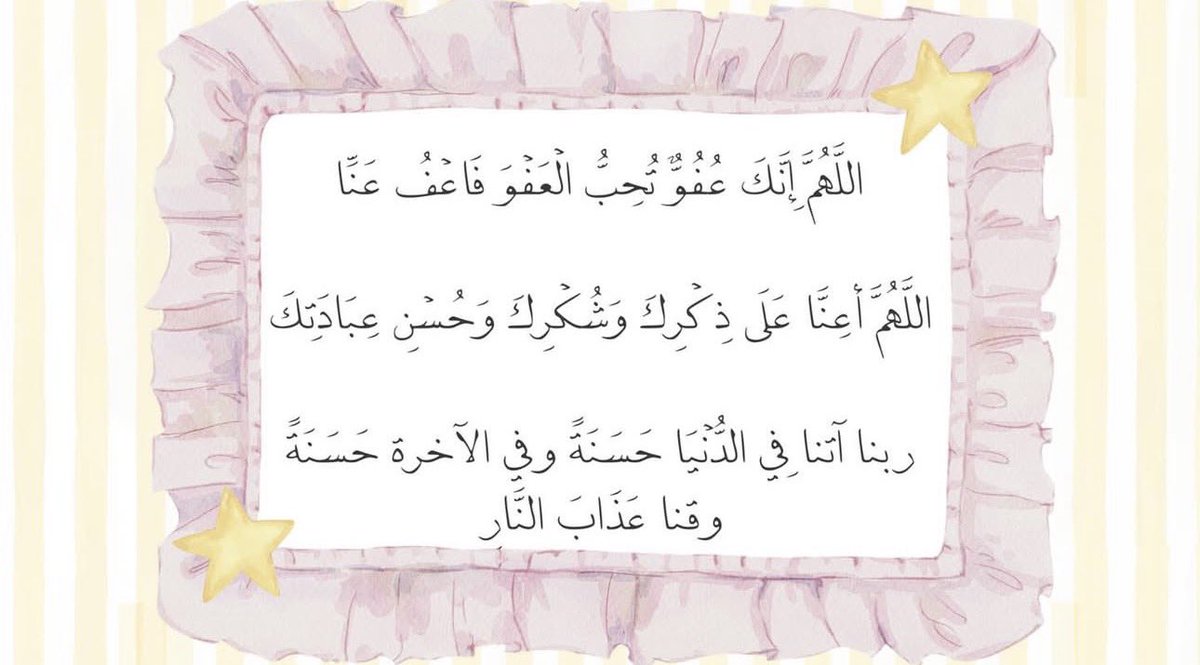 اللَّهُمَّ إِنَّكَ عُفُوٌّ تُحِبُّ الْعَفْوَ فَاعْفُ عَنَّا
اللَّهُمَّ أَعِنَّا عَلَى ذِكْرِكَ وَشُكْرِكَ وَحُسْنِ عِبَادَتِكَ
ربنا آتنا فِي الدُّنْيَا حَسَنَةً وفي الآخرة حَسَنَةً
وقنا عَذَابَ النَّارِ